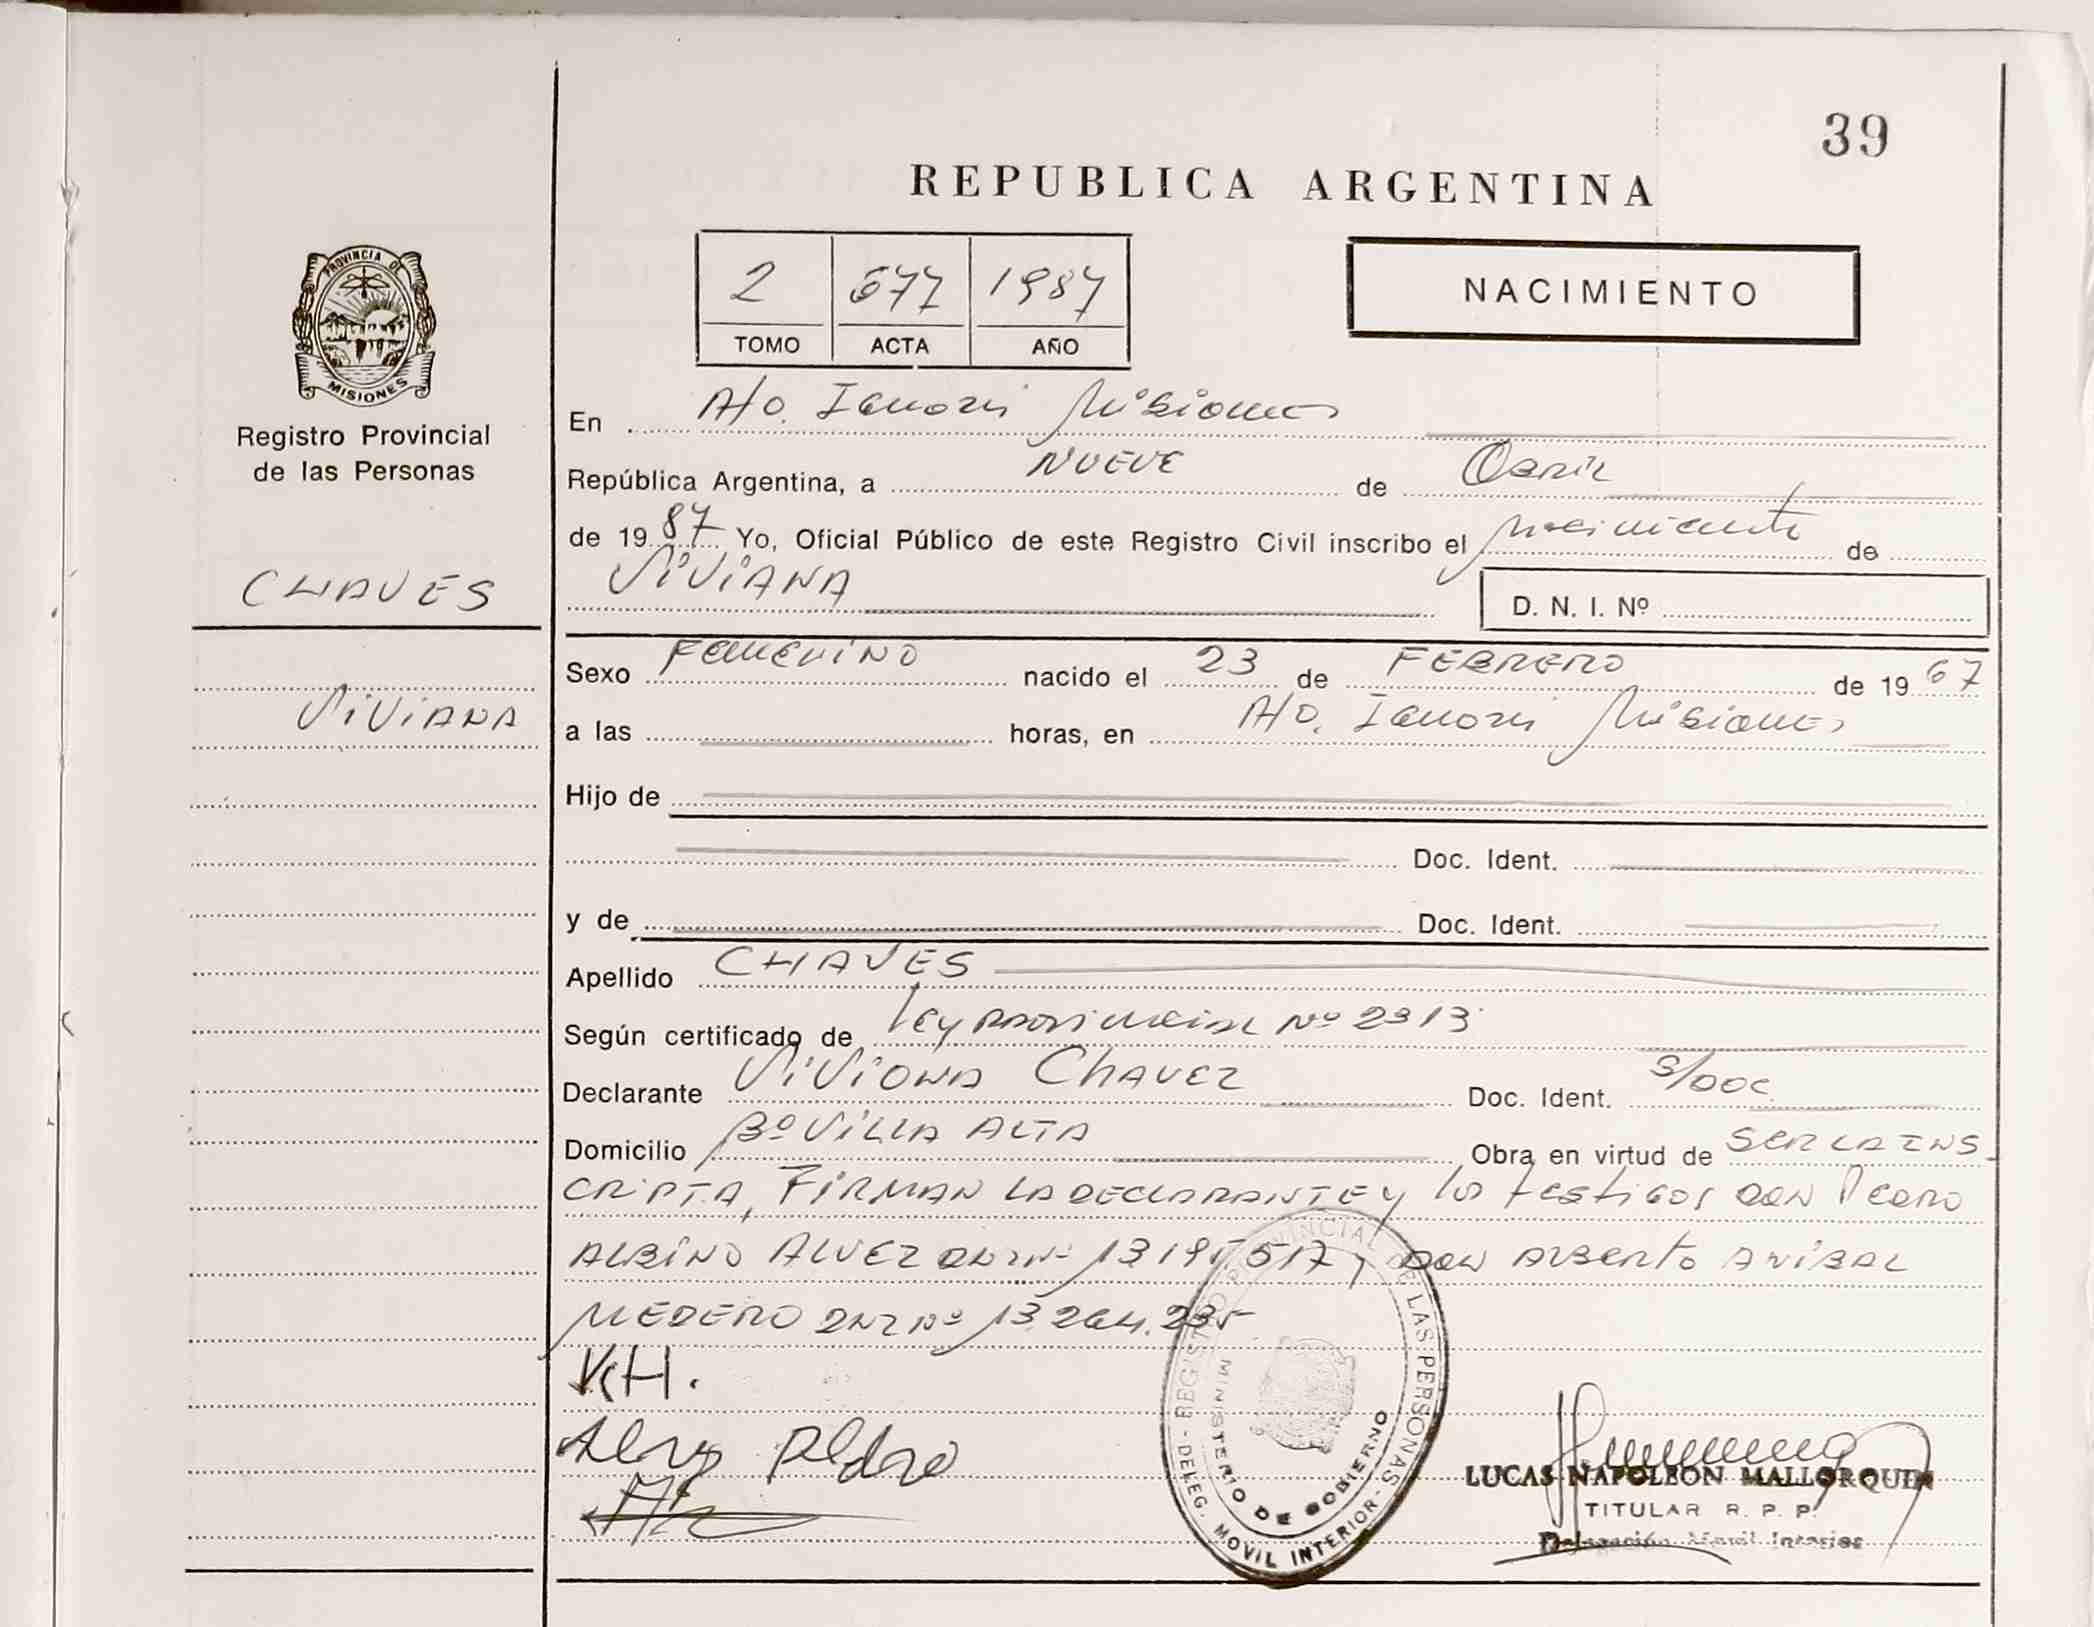 39
REPUBLICA ARGENTINA
2 677 1987
TOMO ACTA AÑO
NACIMIENTO
PROVINCIA DE
MISIONES
Registro Provincial
de las Personas
CHAVES
VIVIANA
En A/o. Misiones
República Argentina, a NUEVE de Abril
de 1987 Yo, Oficial Público de este Registro Civil inscribo el nacimiento de
VIVIANA D. N. I. Nº
Sexo Femenino nacido el 23 de FEBRERO de 1967
a las horas, en A/o. Misiones
Hijo de
Doc. Ident.
y de Doc. Ident.
Apellido CHAVES
Según certificado de Ley Provincial Nº 2313
Declarante Viviana Chavez Doc. Ident. S/DOC
Domicilio Bº VILLA ALTA Obra en virtud de SER LA INS
CRIPTA, FIRMAN LA DECLARANTE y los testigos DON Pedro
ALBINO ALVEZ 13195517, DON Alberto ANIBAL
MEDERO DNI Nº 13.264.235
VCH.
Pedro
REGISTRO PROVINCIAL DE LAS PERSONAS
MINISTERIO DE GOBIERNO
- DELEG. MOVIL INTERIOR -
LUCAS NAPOLEON MALLORQUIN
TITULAR R. P. P.
Delegación Movil Interior